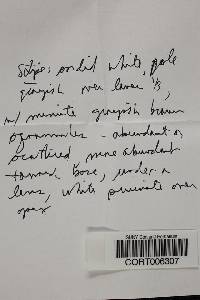 Stipe: sordid white, pale
grayish over lower ⅓,
w/ minute grayish brown
squamules - abundant or
scattered more abundant
toward base, under a
lens, white pruinate over
apex
SUNY Cortland Herbarium
CORT006307